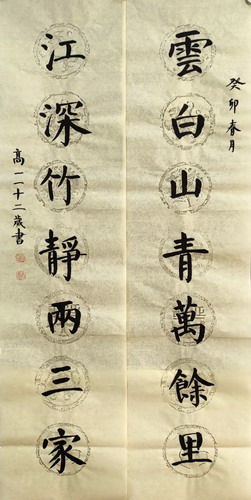 癸卯春月
雲白山青萬餘里
江深竹靜兩三家
高一一十二歲書